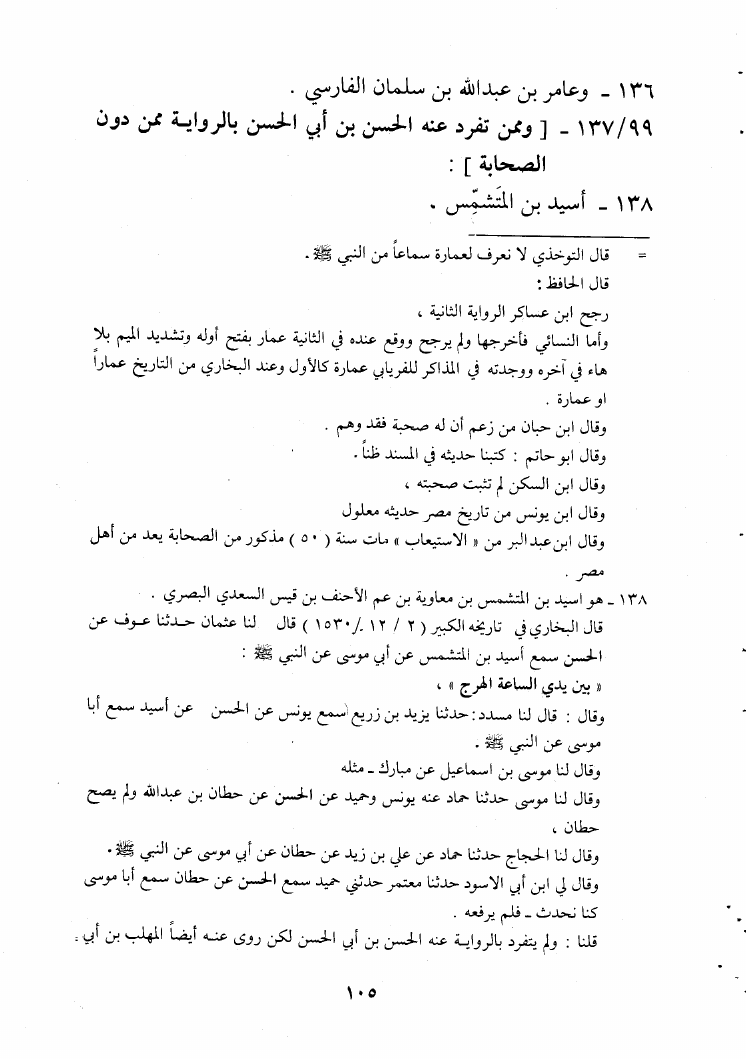 ١٣٦ - وعامر بن عبدالله بن سلمان الفارسي .
١٣٧/٩٩ - [ وممن تفرد عنه الحسن بن أبي الحسن بالرواية ممن دون
الصحابة ] :
١٣٨ - أسيد بن المتَشمِّس .
= قال التوخذي لا نعرف لعمارة سماعاً من النبي ﷺ .
قال الحافظ :
رجح ابن عساكر الرواية الثانية ،
وأما النسائي فأخرجها ولم يرجح ووقع عنده في الثانية عمار بفتح أوله وتشديد الميم بلا
هاء في آخره ووجدته في المذاكر للفريابي عمارة كالأول وعند البخاري من التاريخ عماراً
او عمارة .
وقال ابن حبان من زعم أن له صحبة فقد وهم .
وقال ابو حاتم : كتبنا حديثه في المسند ظناً .
وقال ابن السكن لم تثبت صحبته ،
وقال ابن يونس من تاريخ مصر حديثه معلول
وقال ابن عبد البر من « الاستيعاب » مات سنة ( ٥٠ ) مذكور من الصحابة يعد من أهل
مصر .
١٣٨ - هو اسيد بن المتشمس بن معاوية بن عم الأحنف بن قيس السعدي البصري .
قال البخاري في تاريخه الكبير ( ٢ / ١٢ /١٥٣٠ ) قال لنا عثمان حدثنا عوف عن
الحسن سمع أسيد بن المتشمس عن أبي موسى عن النبي ﷺ :
« بين يدي الساعة الهرج » ،
وقال : قال لنا مسدد : حدثنا يزيد بن زريع سمع يونس عن الحسن عن أسيد سمع أبا
موسى عن النبي ﷺ .
وقال لنا موسى بن اسماعيل عن مبارك - مثله
وقال لنا موسى حدثنا حماد عنه يونس وحميد عن الحسن عن حطان بن عبدالله ولم يصح
حطان ،
وقال لنا الحجاج حدثنا حماد عن علي بن زيد عن حطان عن أبي موسى عن النبي ﷺ .
وقال لي ابن أبي الاسود حدثنا معتمر حدثني حميد سمع الحسن عن حطان سمع أبا موسى
كنا نحدث - فلم يرفعه .
قلنا : ولم يتفرد بالرواية عنه الحسن بن أبي الحسن لكن روى عنه أيضاً المهلب بن أبي =
١٠٥